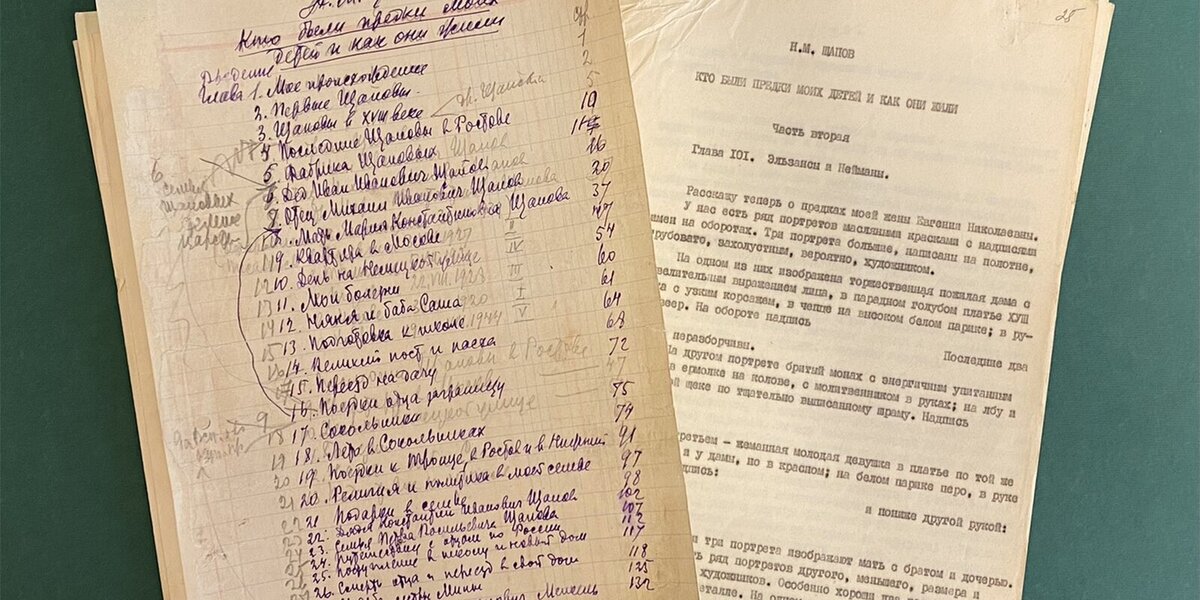 Кто были предки моих
детей и как они жили
стр
Введение 1
Глава 1. Мое происхождение 2
2. Первые Щаповы 5
3. Щаповы в XVIII веке 10
4. Последние Щаповы в Ростове
5. Фабрика Щаповых 16
6. Дед Иван Иванович Щапов 20
7. Отец Михаил Иванович Щапов 37
8. Мать Мария Константиновна Щапова 47
9. Квартира в Москве 54
10. День на Немецкой улице 60
11. Мои болезни 61
12. Няня и баба Саша 64
13. Подготовка к школе 68
14. Великий пост и пасха 72
15. Переезд на дачу
16. Поездки отца заграницу 75
17. Сокольники 79
18. Лето в Сокольниках 91
19. Поездки к Троице, в Ростов и в Нижний 97
20. Религия и политика в моей семье 98
21. Подарки в семье 102
22. Дядя Константин Иванович Щапов 107
23. Семья Петра Васильевича Щапова 112
24. Путешествие с отцом по России 117
25. Поступление в школу и новый дом 118
26. Смерть отца и переезд в свой дом 125
132
25
И.М. ЩАПОВ
КТО БЫЛИ ПРЕДКИ МОИХ ДЕТЕЙ И КАК ОНИ ЖИЛИ
Часть вторая
Глава 101. Эльзансы и Нейманы.
Расскажу теперь о предках моей жены Евгении Николаевны.
У нас есть ряд портретов масляными красками с надписями
имен на оборотах. Три портрета большие, написаны на полотне,
грубовато, захолустным, вероятно, художником.
На одном из них изображена торжественная пожилая дама с
велительным выражением лица, в парадном голубом платье ХУШ
ка с узким корсажем, в чепце на высоком белом парике; в ру-
веер. На обороте надпись
Последние два
неразборчивы.
На другом портрете бритый монах с энергичным упитанным
в ермолке на колове, с молитвенником в руках; на лбу и
й щеке по тщательно выписанному шраму. Надпись
ретьем - жеманная молодая девушка в платье по той же
и у дамы, но в красном; на белом парике перо, в руке
дпись:
и пониже другой рукой:
и три портрета изображают мать с братом и дочерью.
ь ряд портретов другого, меньшего, размера и
художников. Особенно хороши два
еталле. На одном